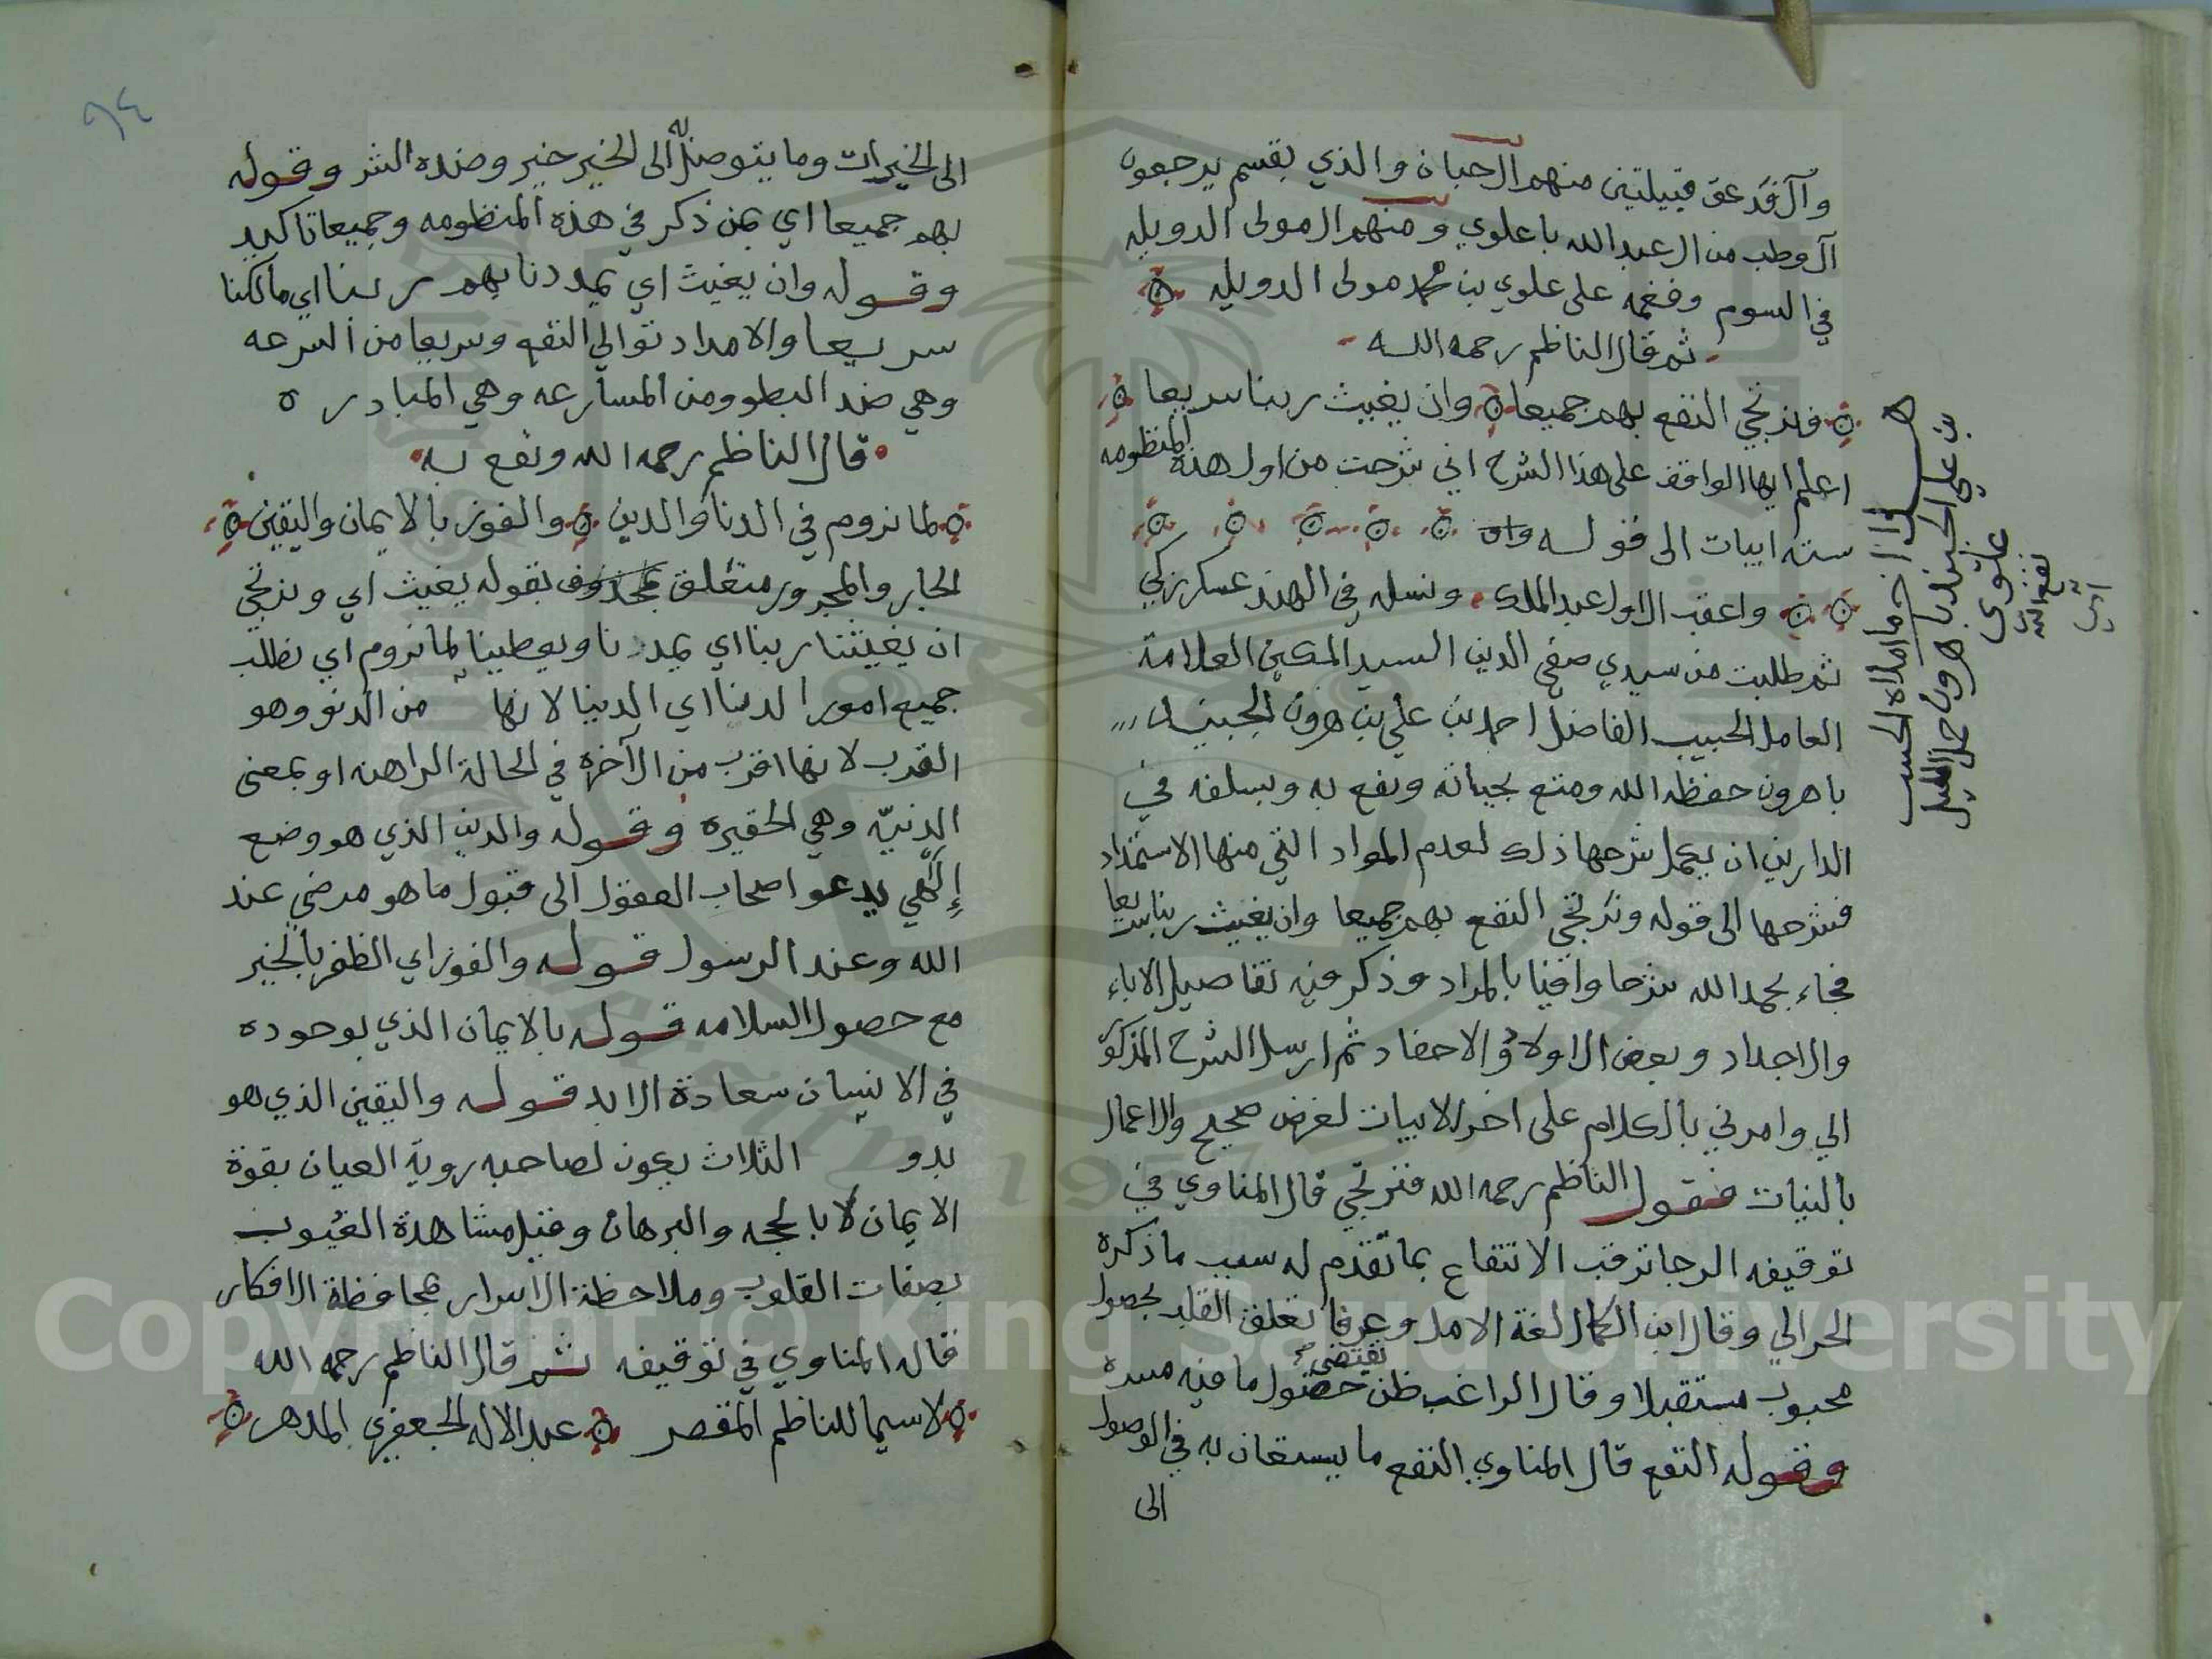 وآل فدعق قبيلتين منهم آل حبان والذي بقسم يرجعون
آل وطب من ال عبدالله باعلوي ومنهم ال مولى الدويله
في السوم وفغمه على علوي بن محمد مولى الدويله
ثم قال الناظم رحمه الله
فنرتجي النفع بهم جميعا وان يغيث ربنا سريعا
اعلم ايها الواقف على هذا الشرح اني شرحت من اول هذه المنظومه
سته ابيات الى قوله
واعقب الاول عبد الملك ونسله في الهند عسكر زكي
ثم طلبت من سيدي صفي الدين السيد المكين العلامة
العامل الحبيب الفاضل احمد بن علي بن هرون الجنيد
باهرون حفظه الله ومتع بحياته ونفع به وبسلفه في
الدارين ان يكمل شرحها ذلك لعدم المواد التي منها الاستمداد
فشرحها الى قوله ونرتجي النفع بهم جميعا وان يغيث ربنا سريعا
فجاء بحمد الله شرحا وافيا بالمراد وذكر فيه تفاصيل الاباء
والاجداد وبعض الاولاد والاحفاد ثم ارسل الشرح المذكور
الي وامرني بالكلام على اخر الابيات لغرض صحيح والاعمال
بالنيات فقول الناظم رحمه الله فنرتجي قال المناوي في
توقيفه الرجا ترقب الانتفاع بما تقدم له سبب ما ذكره
الحرالي وقال ابن الكمال لغة الامل وعرفا تعلق القلب بحصول
محبوب مستقبلا وقال الراغب ظن يقتضي حصول ما فيه مسرة
وقوله النفع قال المناوي النفع ما يستعان به في الوصول
الى
هذا اخر ما املاه الحبيب
بن علي الجنيد باهرون جمل الليل
علوي
نفع الله
امين
٩٤
الى الخيرات وما يتوصل به الى الخير خير وضده الشر وقوله
بهم جميعا اي بمن ذكر في هذه المنظومه وجميعا تاكيد
وقوله وان يغيث اي يمددنا بهم ربنا اي مالكنا
سريعا والامداد توالي النفع وسريعا من السرعه
وهي ضد البطو ومن المسارعه وهي المبادره
قال الناظم رحمه الله ونفع به
لما نروم في الدنا والدين والفوز بالايمان واليقين
الجار والمجرور متعلق بمحذوف بقوله يغيث اي ونرتجي
ان يغيثنا ربنا اي يمددنا ويعطينا لما نروم اي نطلب
جميع امور الدنا اي الدنيا لانها من الدنو وهو
القرب لانها اقرب من الآخرة في الحالة الراهنه او بمعنى
الدنيّه وهي الحقيره وقوله والدين الذي هو وضع
إلهي يدعو اصحاب العقول الى قبول ما هو مرضي عند
الله وعند الرسول قوله والفوز اي الظفر بالخير
مع حصول السلامه قوله بالايمان الذي بوجوده
في الانسان سعادة الابد قوله واليقين الذي هو
بدو الثلاث يكون لصاحبه روية العيان بقوة
الايمان لا بالحجه والبرهان وقيل مشاهدة الغيوب
بصفات القلوب وملاحظة الاسرار بمحافظة الافكار
قاله المناوي في توقيفه ثم قال الناظم رحمه الله
لاسيما للناظم المقصر عبد الاله الجعفري المدهر
Copyright © King Saud University
1957